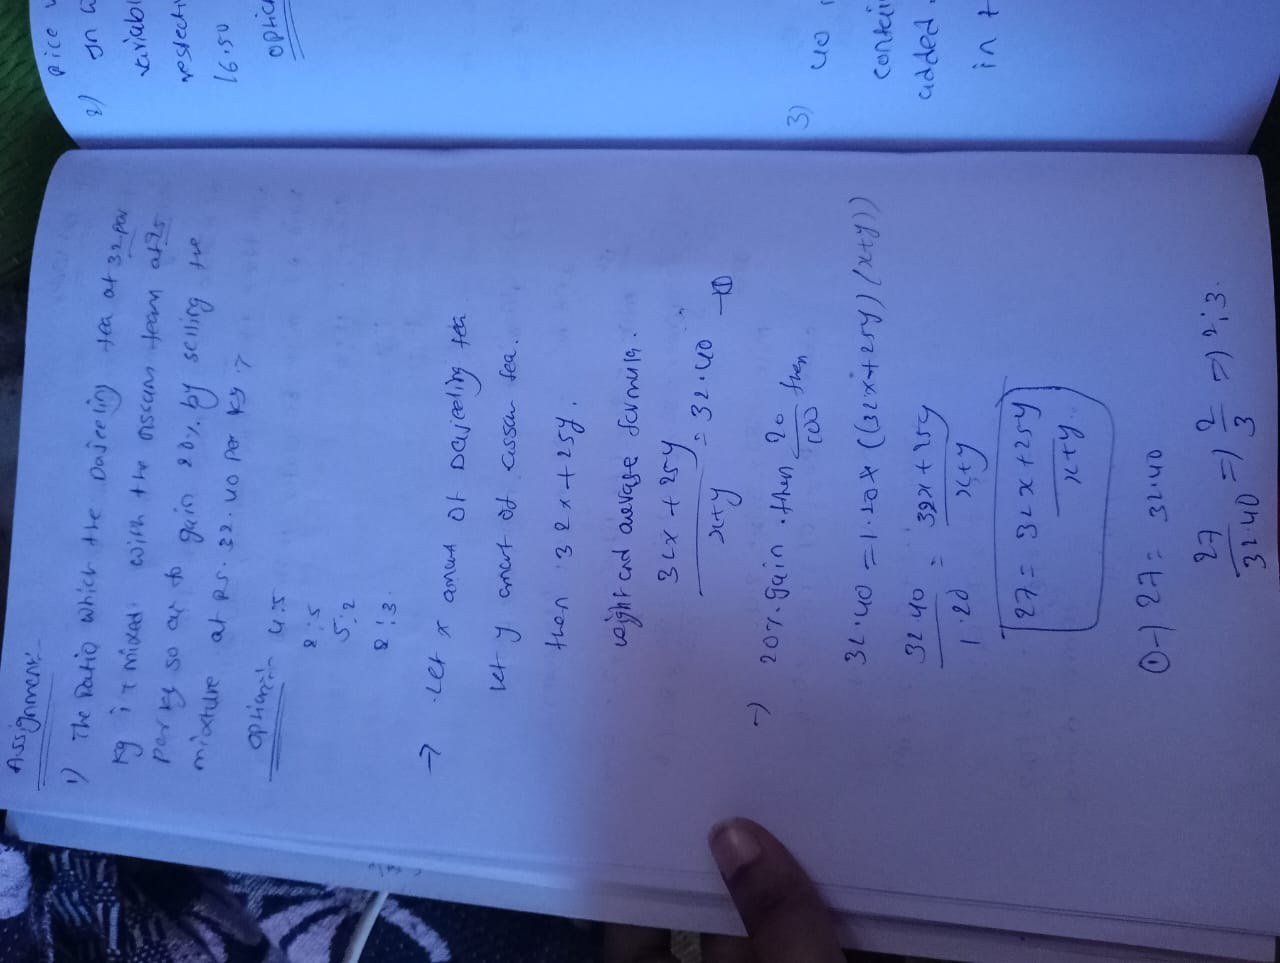 Assignment:-
1) The Ratio which the Dajeeling tea at 32 per
kg is mixed with the Assam team at 25
per kg so as to gain 20% by selling the
mixture at Rs. 32.40 per kg ?
option:- 4:5
8:5
5:2
2:3.
→ Let x amout of Dajeeling tea
let y amout of Assam tea.
then 32x + 25y.
weight and average formula.
32x + 25y / x+y = 32.40 → ①
→ 20% gain . then 20/100 then
32.40 = 1.20 × ((32x+25y) (x+y))
32.40 / 1.20 = 32x + 25y / x+y
27 = 32x + 25y / x+y
①→ 27 = 32.40
27 / 32.40 => 2/3 => 2:3.
price
2) In
variabl
respectiv
16.50
option
3) 40
contain
added
in t